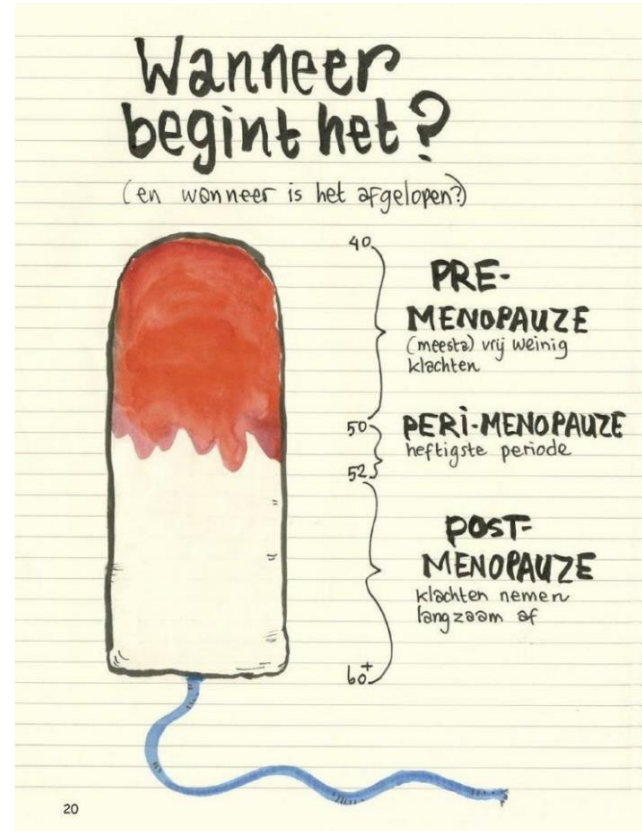 Wanneer
begint het?
(en wanneer is het afgelopen?)
40
PRE-
MENOPAUZE
(meestal) vrij weinig
klachten
50
PERI-MENOPAUZE
heftigste periode
52
POST-
MENOPAUZE
klachten nemen
langzaam af
60+
20